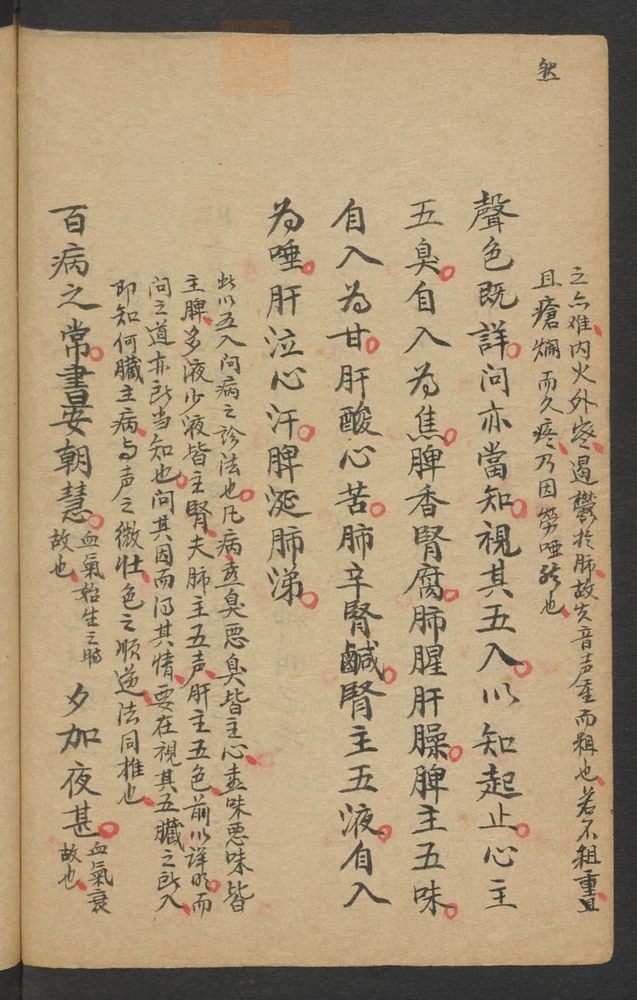 然
之亦准内火外寒遏鬱於肺故失音声重而粗也若不粗重且
且瘡爛而久疼乃因榮唖
聲色既詳問亦當知視其五入以知起止心主
五臭自入為焦脾香腎腐肺腥肝臊脾主五味
自入為甘肝酸心苦肺辛腎鹹腎主五液自入
為唾肝泣心汗脾涎肺涕
此以五入問病之診法也凡病喜臭悪臭皆主心喜味悪味皆
主脾多液少液皆主腎夫肺主五声肝主五色前以詳明而
問之道亦所當知也問其因而得其情要在視其五臓之所入
即知何臓主病与声之微壮色之順逆法同推也
百病之常晝安朝慧血氣始生之時故也夕加夜甚血氣衰故也